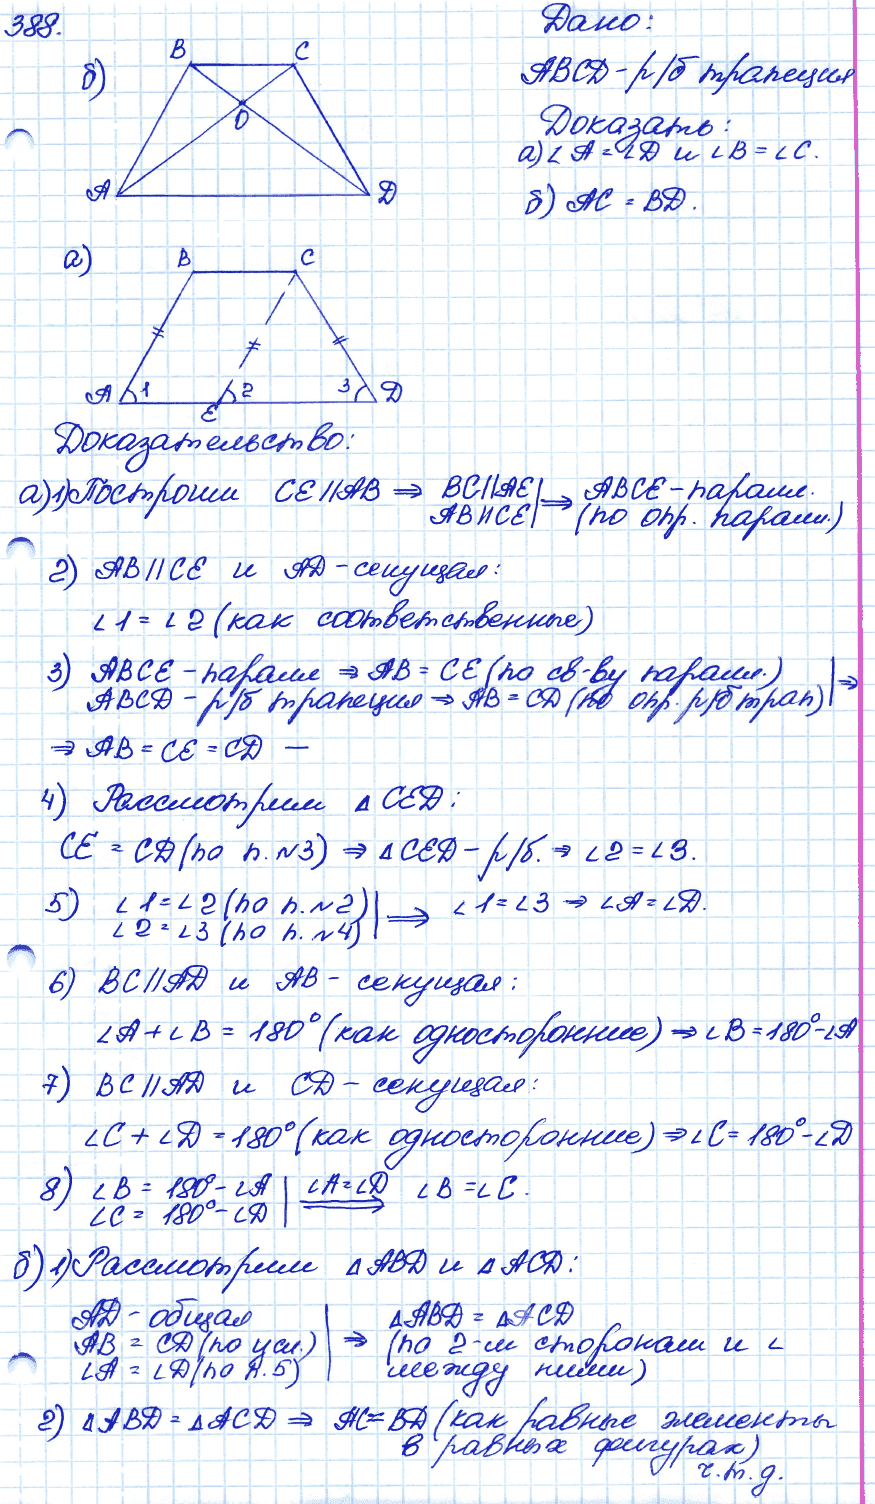 388.
Дано:
ABCD - р/б трапеция
Доказать:
а) ∠A = ∠D и ∠B = ∠C.
б) AC = BD.
б)
B C
O
A D
а)
B C
A 1 2 3 D
E
Доказательство:
а) 1) Построим CE || AB ⇒ BC || AE | ⇒ ABCE - паралл.
AB || CE | (по опр. паралл.)
2) AB || CE и AD - секущая:
∠1 = ∠2 (как соответственные)
3) ABCE - паралл ⇒ AB = CE (по св-ву паралл.) | ⇒
ABCD - р/б трапеция ⇒ AB = CD (по опр. р/б трап) |
⇒ AB = CE = CD —
4) Рассмотрим △CED:
CE = CD (по п. N3) ⇒ △CED - р/б. ⇒ ∠2 = ∠3.
5) ∠1 = ∠2 (по п. N2) | ⇒ ∠1 = ∠3 ⇒ ∠A = ∠D.
∠2 = ∠3 (по п. N4) |
6) BC || AD и AB - секущая:
∠A + ∠B = 180° (как односторонние) ⇒ ∠B = 180° - ∠A
7) BC || AD и CD - секущая:
∠C + ∠D = 180° (как односторонние) ⇒ ∠C = 180° - ∠D
8) ∠B = 180° - ∠A | ∠A = ∠D ⇒ ∠B = ∠C.
∠C = 180° - ∠D |
б) 1) Рассмотрим △ABD и △ACD:
AD - общая | △ABD = △ACD
AB = CD (по усл.) | ⇒ (по 2-м сторонам и ∠
∠A = ∠D (по п. 5) | между ними)
2) △ABD = △ACD ⇒ AC = BD (как равные элементы
в равных фигурах)
ч.т.д.